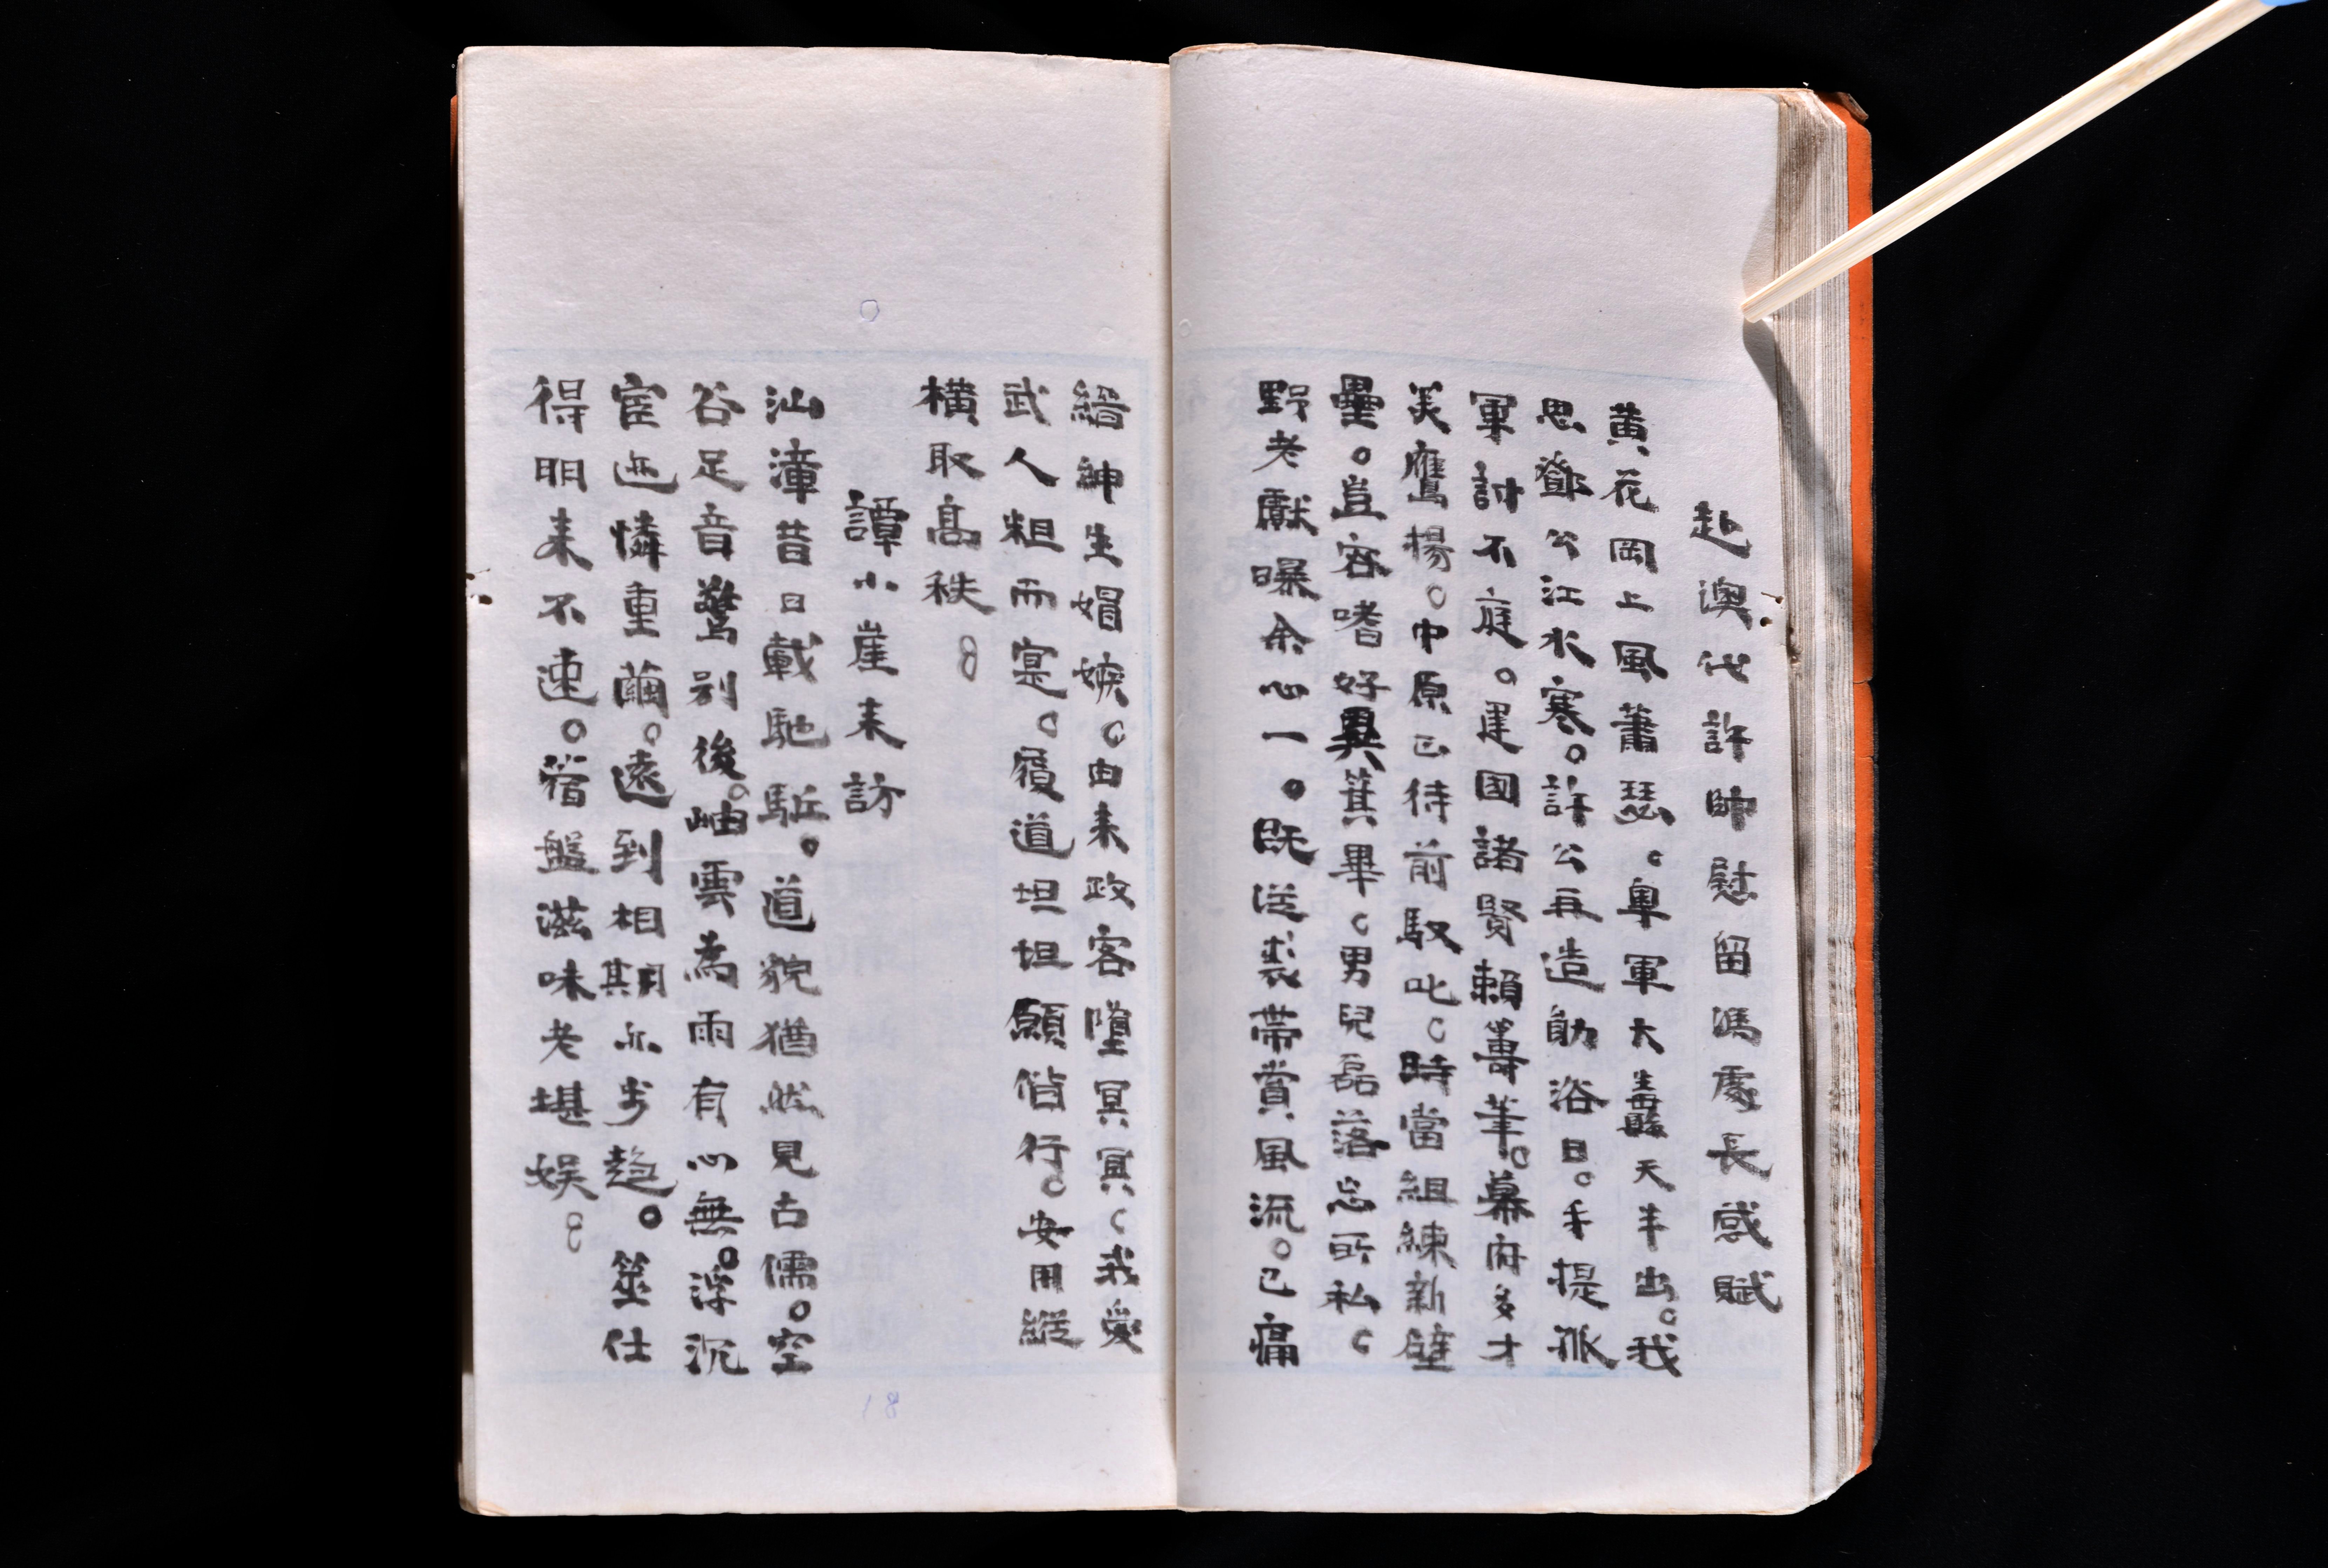 赴澳代許帥慰留馮處長感賦
黄花岡上風蕭瑟。粵軍大纛天半出。我
思鄧公江水寒。許公再造勛浴日。手提孤
軍討不庭。建國諸賢賴籌筆。幕府多才
美鷹揚。中原已待前馭叱。時當組練新壁
壘。豈容嗜好異箕畢。男兒磊落忘所私。
野老獻曝余心一。既送裘帶賞風流。已痛
縉紳生媢嫉。由来政客墮冥冥。我愛
武人粗而寔。履道坦坦願偕行。安用縱
横取高秩。
譚小崖来訪
汕漳昔日載馳駈。道貌猶然見古儒。空
谷足音驚别後。岫雲為雨有心無。浮沉
宦迹憐重繭。遠到相期亦步趨。筮仕
得明来不速。簪盤滋味老堪娱。
18